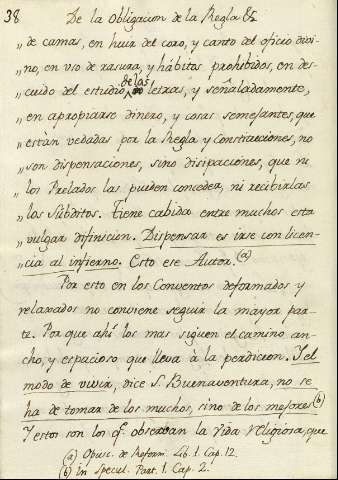 38 De la Obligacion de la Regla &c
„ de camas, en huir del coro, y canto del oficio divi-
„ no, en uso de rasura, y hábitos prohibidos, en des-
„ cuido del estudio de las letras, y señaladamente,
„ en apropiarse dinero, y cosas semejantes, que
„ están vedadas por la Regla y Constituciones, no
„ son dispensaciones, sino disipaciones, que ni
„ los Prelados las pueden conceder, ni recibirlas
„ los Súbditos. Tiene cabida entre muchos esta
„ vulgar difinicion. Dispensar es irse con licen-
„ cia al infierno. Esto ese Autor. (a)
Por esto en los Conventos deformados y
relaxados no conviene seguir la mayor par-
te. Porque ahí los mas siguen el camino an-
cho, y espacioso que lleva à la perdicion. Y el
modo de vivir, dice S. Buenaventura, no se
ha de tomar de los muchos, sino de los mejores (b)
Y estos son los q.e observan la Vida Religiosa, que
(a) Opusc. de Reform. Lib. 1. Cap. 12.
(b) In Specul. Part. 1. Cap. 2.